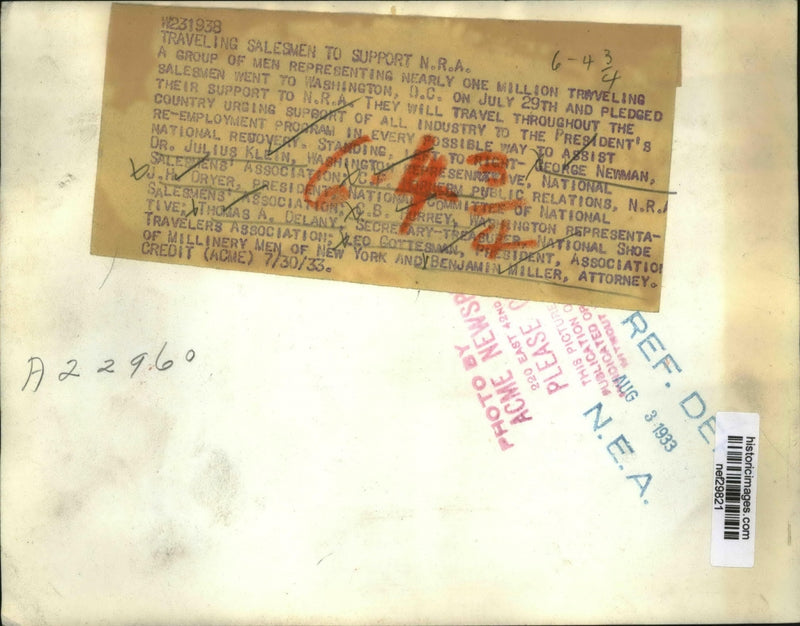 W231938
TRAVELING SALESMEN TO SUPPORT N.R.A.
A GROUP OF MEN REPRESENTING NEARLY ONE MILLION TRAVELING
SALESMEN WENT TO WASHINGTON, D.C. ON JULY 29TH AND PLEDGED
THEIR SUPPORT TO N.R.A. THEY WILL TRAVEL THROUGHOUT THE
COUNTRY URGING SUPPORT OF ALL INDUSTRY TO THE PRESIDENT'S
RE-EMPLOYMENT PROGRAM IN EVERY POSSIBLE WAY TO ASSIST
NATIONAL RECOVERY. STANDING, TO RIGHT- GEORGE NEWMAN,
DR. JULIUS KLEIN, WASHINGTON REPRESENTATIVE, NATIONAL
SALESMENS' ASSOCIATION, PUBLIC RELATIONS, N.R.A
DRYER, PRESIDENT, NATIONAL COMMITTEE OF NATIONAL
SALESMENS' ASSOCIATION, WASHINGTON REPRESENTA-
TIVE, THOMAS A. DELANY, SECRETARY-TREASURER, NATIONAL SHOE
TRAVELERS ASSOCIATION; LEO GOTTESMAN, PRESIDENT, ASSOCIATION
OF MILLINERY MEN OF NEW YORK AND BENJAMIN MILLER, ATTORNEY.
CREDIT (ACME) 7/30/33.
6-4 3/4
6-4 3/4
A22960
PHOTO BY
ACME NEWSP
220 EAST 42ND
PLEASE
THIS PICTURE
PUBLICATION
SYNDICATED OR
WITHOUT
REF. DE
AUG 3 1933
N.E.A.
historicimages.com
nef29821